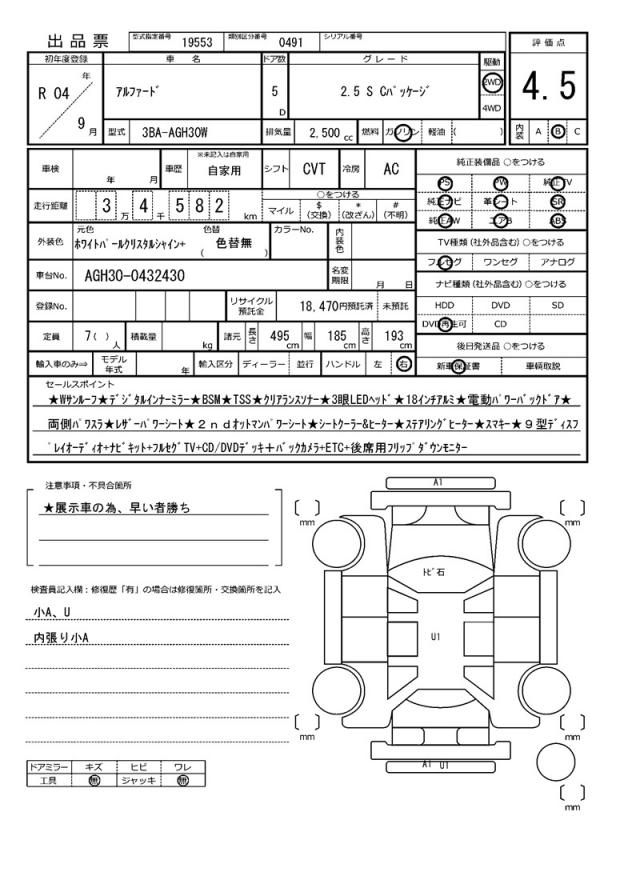 出品票 型式指定番号 19553 類別区分番号 0491 シリアル番号
初年度登録 車 名 ドア数 グレード 駆動 評価点
R 04 年 9 月 アルファード 5 D 2.5 S Cパッケージ 2WD 4WD 4.5
型式 3BA-AGH30W 排気量 2,500 cc 燃料 ガソリン 軽油 ( ) 内装 A B C
車検 年 月 車歴 ※未記入は自家用 自家用 シフト CVT 冷房 AC
走行距離 3 万 4 千 5 8 2 km ○をつける マイル $ (交換) * (改ざん) # (不明)
外装色 元色 ホワイトパールクリスタルシャイン+ 色替 ( 色替無 ) カラーNo. 内装色
車台No. AGH30-0432430 名変期限 月 日
登録No. リサイクル預託金 18,470円預託済 未預託
定員 7( ) 人 積載量 kg 諸元 長さ 495 cm 幅 185 cm 高さ 193 cm
輸入車のみ⇒ モデル年式 年 輸入区分 ディーラー 並行 ハンドル 左 右
純正装備品 ○をつける
PS PW 純正TV
純正ナビ 革シート SR
純正AW エアB ABS
TV種類 (社外品含む) ○をつける
フルセグ ワンセグ アナログ
ナビ種類 (社外品含む) ○をつける
HDD DVD SD
DVD再生可 CD
後日発送品 ○をつける
新車保証書 車輌取説
セールスポイント
★Wサンルーフ★デジタルインナーミラー★BSM★TSS★クリアランスソナー★3眼LEDヘッド★18インチアルミ★電動パワーバックドア★
両側パワスラ★レザーパワーシート★2ndオットマンパワーシート★シートクーラー&ヒーター★ステアリングヒーター★スマキー★9型ディスプ
レイオーディオ+ナビキット+フルセグTV+CD/DVDデッキ+バックカメラ+ETC+後席用フリップダウンモニター
注意事項・不具合箇所
★展示車の為、早い者勝ち
検査員記入欄：修復歴「有」の場合は修復箇所・交換箇所を記入
小A、U
内張り小A
ドアミラー キズ ヒビ ワレ
工具 無 ジャッキ 無
A1
〔 〕mm 〔 〕mm
トビ石
U1
〔 〕mm 〔 〕mm
A1 U1
〔 〕mm